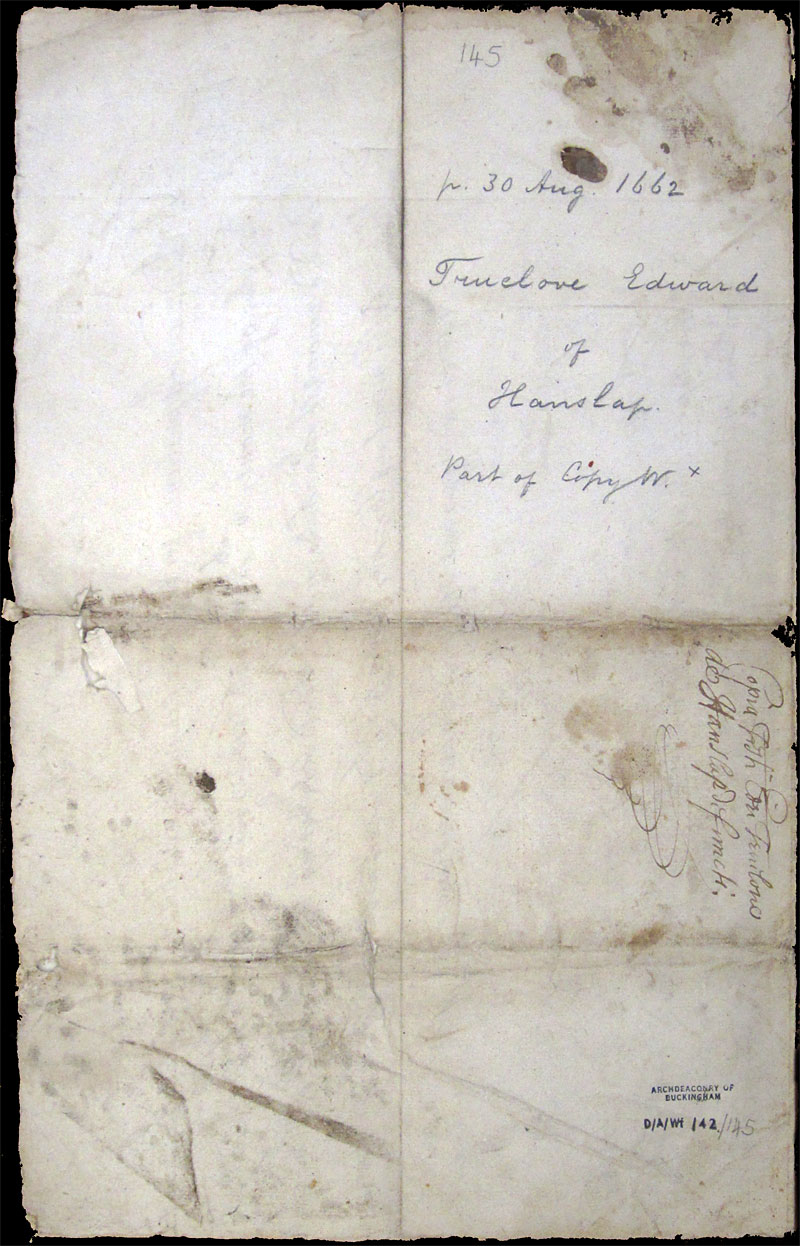 145
p. 30 Aug. 1662
Truelove Edward
of
Hanslap.
Part of Copy W. x
Copia Testi Edri Truelove
de Hanslap defuncti.
ARCHDEACONRY OF
BUCKINGHAM
D/A/Wf 142/145